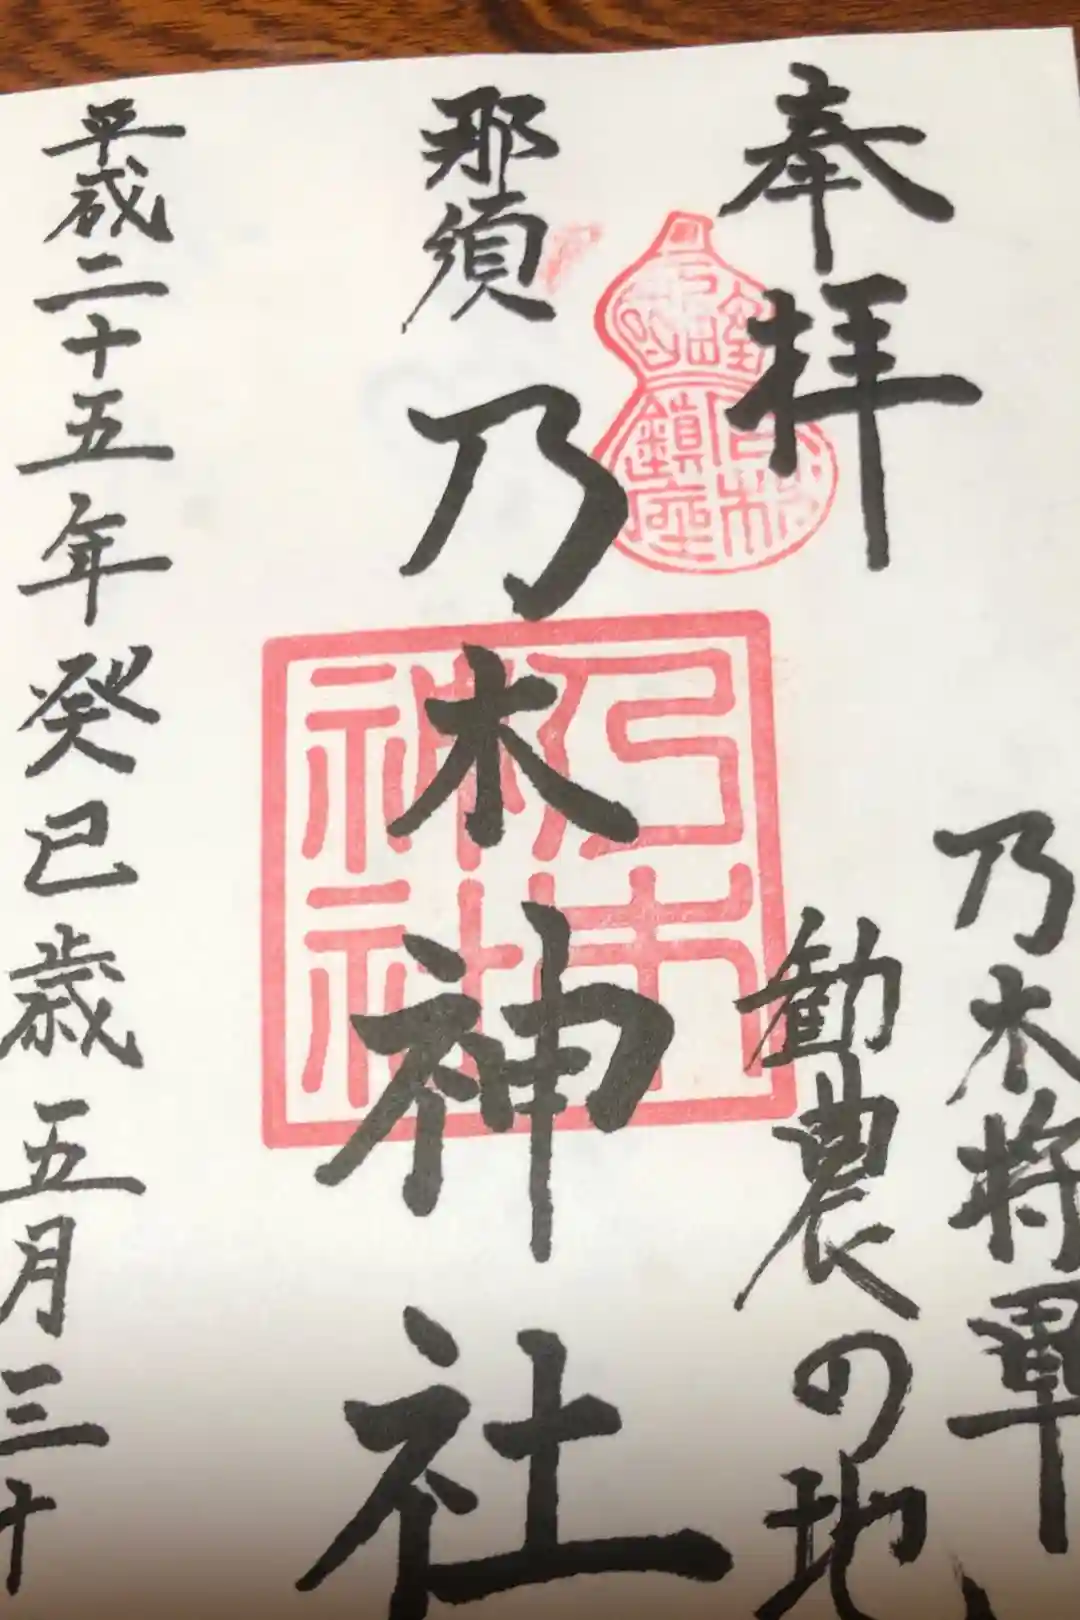 奉拝
乃木将軍
勧農の地
那須
乃木神社
乃木神社
鎮座
平成二十五年癸巳歳五月三十